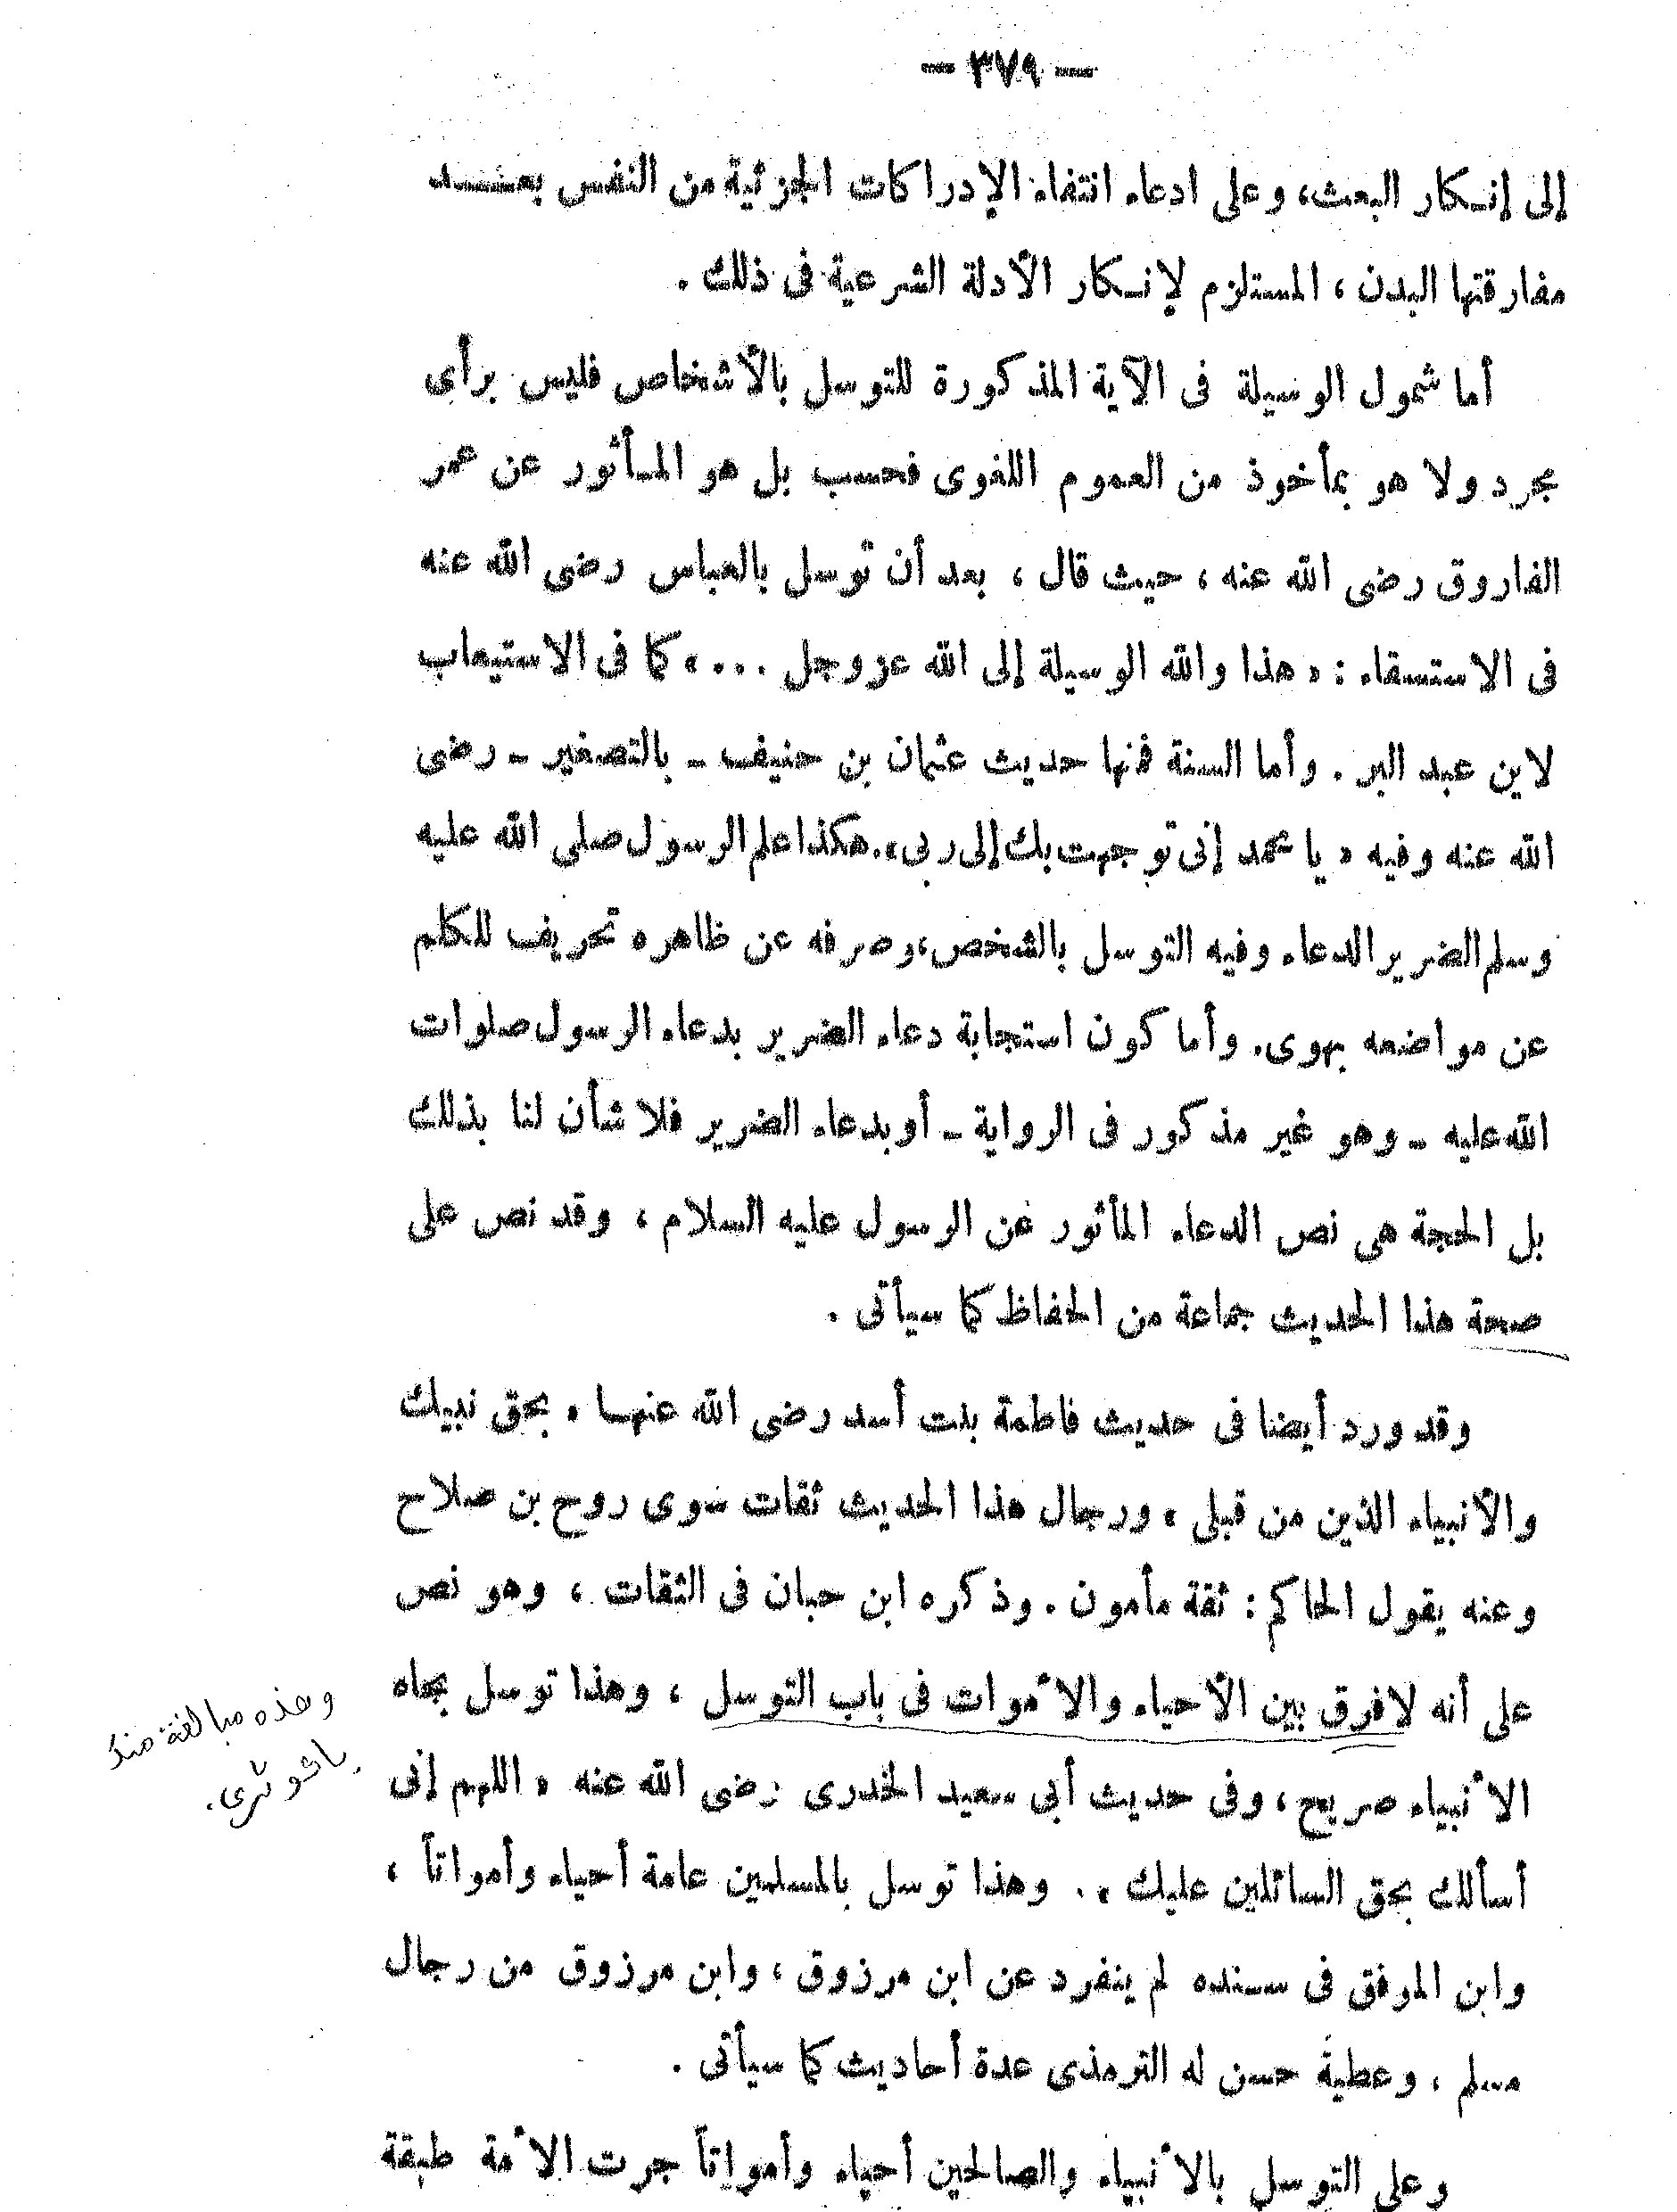 — ٣٧٩ —
إلى إنكار البعث، وعلى ادعاء انتفاء الإدراكات الجزئية من النفس بعــد
مفارقتها البدن ، المستلزم لإنكار الأدلة الشرعية فى ذلك .
أما شمول الوسيلة فى الآية المذكورة للتوسل بالأشخاص فليس برأى
مجرد ولا هو بمأخوذ من العموم اللغوى فحسب بل هو المأثور عن عمر
الفاروق رضى الله عنه ، حيث قال ، بعد أن توسل بالعباس رضى الله عنه
فى الاستسقاء : « هذا والله الوسيلة إلى الله عز وجل ... » كما فى الاستيعاب
لابن عبد البر . وأما السنة فمنها حديث عثمان بن حنيف ـ بالتصغير ـ رضى
الله عنه وفيه « يا محمد إنى توجهت بك إلى ربى » . هكذا علم الرسول صلى الله عليه
وسلم الضرير الدعاء وفيه التوسل بالشخص، وصرفه عن ظاهره تحريف للكلم
عن مواضعه بهوى. وأما كون استجابة دعاء الضرير بدعاء الرسول صلوات
الله عليه ـ وهو غير مذكور فى الرواية ـ أو بدعاء الضرير فلا شأن لنا بذلك
بل الحجة هى نص الدعاء المأثور عن الرسول عليه السلام ، وقد نص على
صحة هذا الحديث جماعة من الحفاظ كما سيأتى .
وقد ورد أيضا فى حديث فاطمة بنت أسد رضى الله عنها « بحق نبيك
والأنبياء الذين من قبلى » ورجال هذا الحديث ثقات سوى روح بن صلاح
وعنه يقول الحاكم : ثقة مأمون . وذكره ابن حبان فى الثقات ، وهو نص
على أنه لا فرق بين الأحياء والأموات فى باب التوسل ، وهذا توسل بجاه
الأنبياء صريح ، وفى حديث أبى سعيد الخدرى رضى الله عنه « اللهم إنى
أسألك بحق السائلين عليك » . وهذا توسل بالمسلمين عامة أحياء وأمواتاً ،
وابن الموفق فى سنده لم ينفرد عن ابن مرزوق ، وابن مرزوق من رجال
مسلم ، وعطية حسن له الترمذى عدة أحاديث كما سيأتى .
وعلى التوسل بالأنبياء والصالحين أحياء وأمواتاً جرت الأمة طبقة
وهذه مبالغة منك
يا كوثري .